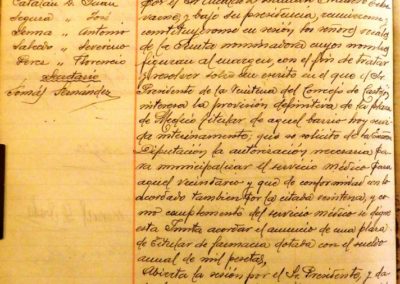 Catalán D. Juan
Segura " José
Senna " Antonio
Salcedo " Severino
Perez " Florencio
Secretario
Tomás Fernández
vacno, y bajo su presidencia, reunieronse y
constituyeronse en sesión, los señores vocales
de la Junta nominadora cuyos nombres
figuran al margen, con el fin de tratar
y resolver sobre un escrito en el que el Sr.
Presidente de la Veintena del Concejo de
interesa la provisión definitiva de la plaza
de Médico titular de aquel barrio hoy servida
interinamente, que se solicite de la Excma
Diputación la autorización necesaria para
municipalizar el servicio médico para
aquel vecindario y que de conformidad con lo
acordado tambien por la citada veintena, y como
complemento del servicio médico se digne
esta Junta acordar el anuncio de una plaza
de titular de farmacia dotada con el sueldo
anual de mil pesetas,
Abierta la sesión por el Sr. Presidente, y da